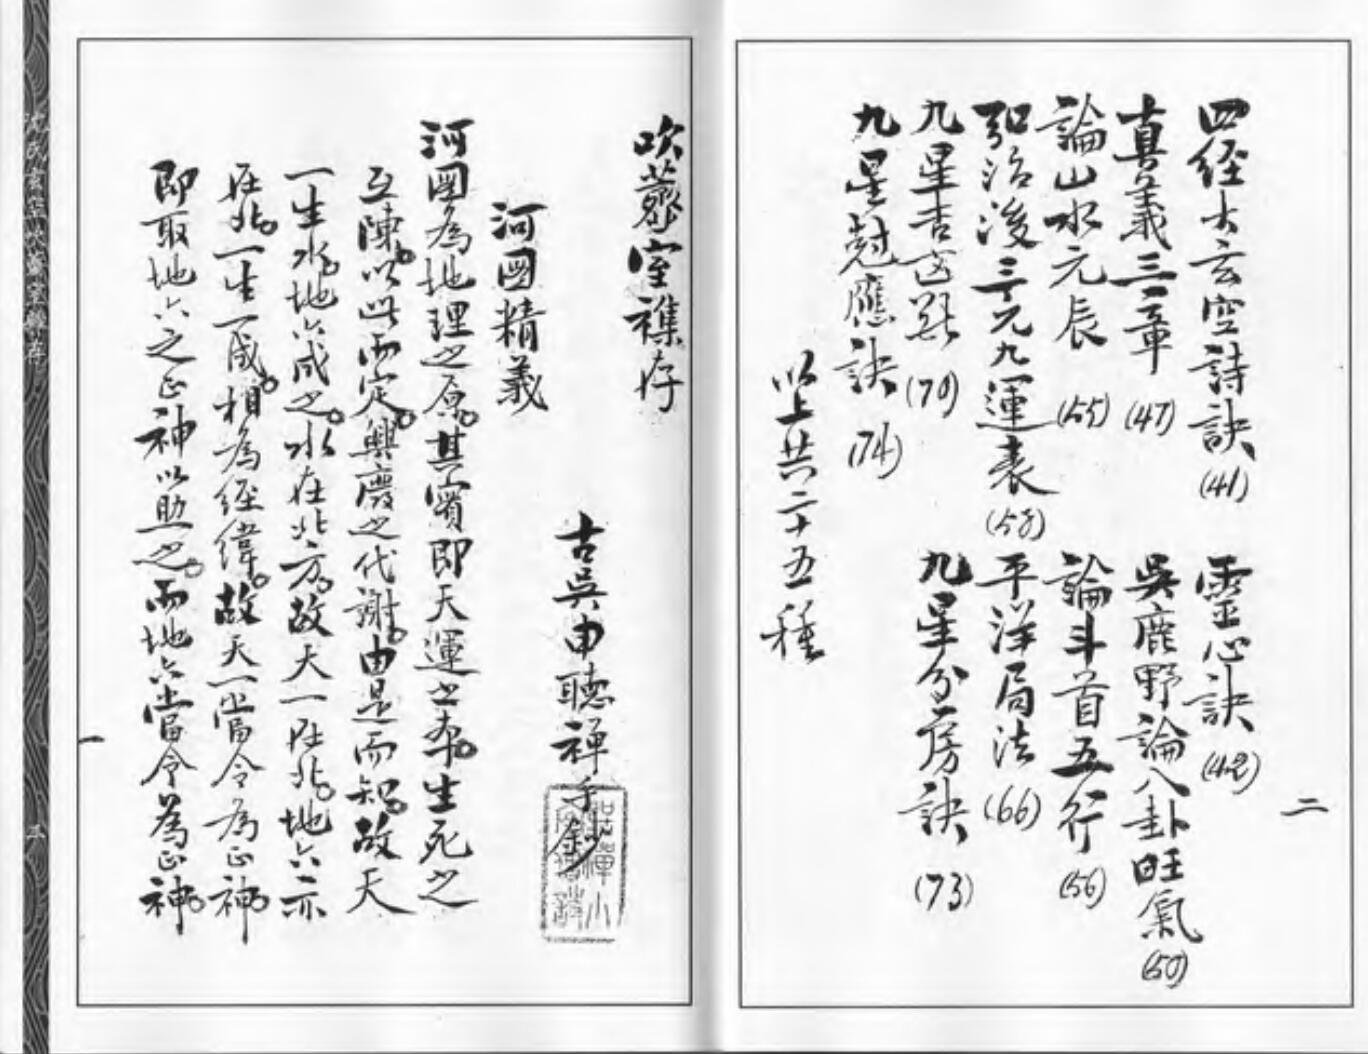 四經大玄空詩訣 (41) 靈心訣 (42)
真義三章 (47) 吳鹿野論八卦旺氣 (50)
論山水元辰 (55) 論斗首五行 (56)
弘治後三元九運表 (58) 平洋局法 (66)
九星吉凶 (70) 九星分房訣 (73)
九星尅應訣 (74)
以上共二十五種
二
吹虀室襍存
古吳申聽禪手鈔
河圖精義
河圖為地理之原。其實即天運之本。生死之
互陳。以此而定。興廢之代謝。由是而知。故天
一生水。地六成之。水在北方。故天一在北。地六亦
在北。一生一成。相為經緯。故天一當令為正神。
即取地六之正神以助之。而地六當令為正神。
一
沈氏玄空吹虀室襍存
三